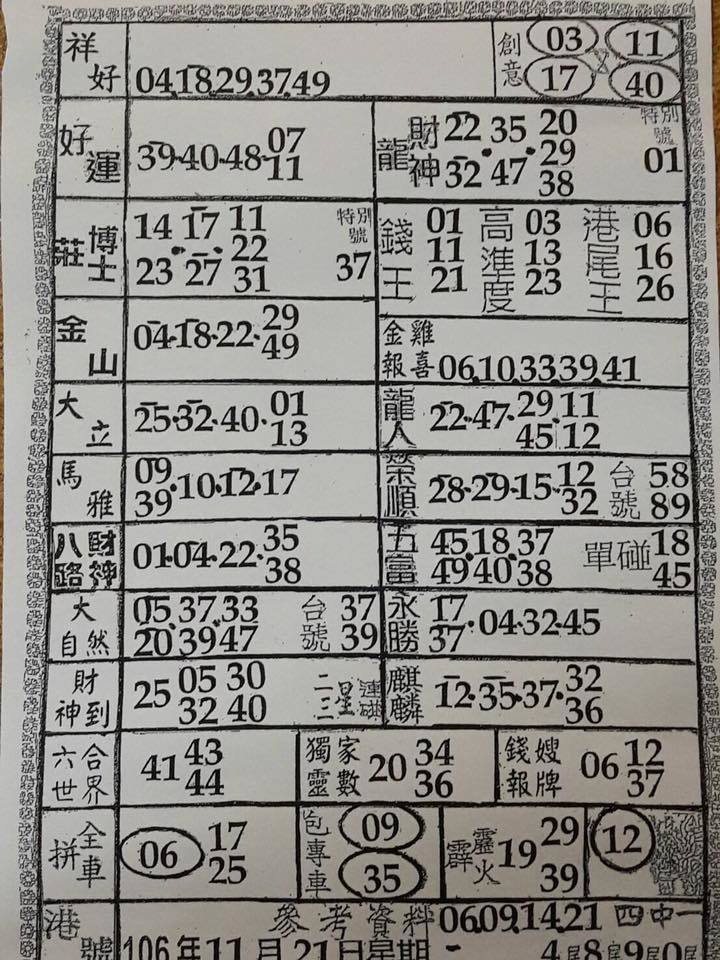 祥好 04.18.29.37.49 創意 03 11 17 40
好運 39.40.48.07 11
龍財神 22 35 20 29 32 47 38 特別號 01
莊博士 14 17 11 22 23 27 31 特別號 37
錢王 01 11 21 高準度 03 13 23 港尾王 06 16 26
金山 04.18.22.29 49
金雞報喜 06.10.33.39.41
大立 25.32.40.01 13
龍人 22.47.29.11 45 12
馬雅 09 39.10.12.17
榮順 28.29.15.12 32 台號 58 89
八路財神 01.04.22.35 38
五富 45.18.37 49 40 38 單碰 18 45
大自然 05.37.33 20 39 47 台號 37 39
永勝 17 37.04.32.45
財神到 25 05 30 32 40 二三星連碰
麒麟 12.35.37.32 36
六合世界 41 43 44
獨家靈數 20 34 36
錢嫂報牌 06 12 37
全車拼 06 17 25
包專車 09 35
霹靂火 19 29 39
12
港號 參考資料 06.09.14.21 四中一
106年11月21日星期 4尾8尾9尾0尾